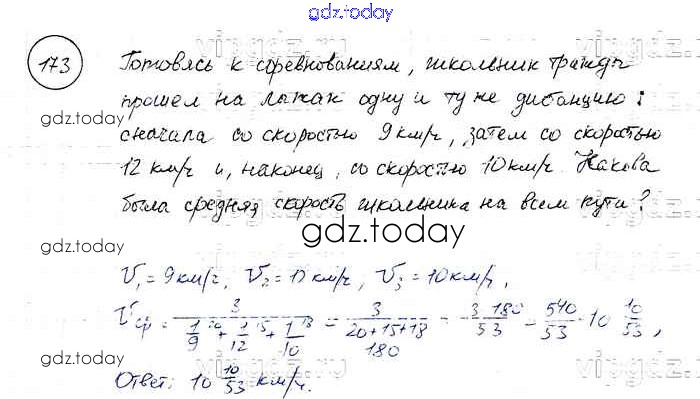 gdz.today
173
Готовясь к соревнованиям, школьник трижды
прошел на лыжах одну и ту же дистанцию:
gdz.today
сначала со скоростью 9 км/ч, затем со скоростью
12 км/ч и, наконец, со скоростью 10 км/ч. Какова
была средняя скорость школьника на всем пути?
gdz.today
gdz.today
V₁ = 9 км/ч, V₂ = 12 км/ч, V₃ = 10 км/ч,
Vср = 3/(1/9²⁰ + 1/12¹⁵ + 1/10¹⁸) = 3/((20+15+18)/180) = 3·180/53 = 540/53 = 10 10/53,
Ответ: 10 10/53 км/ч.
gdz.today